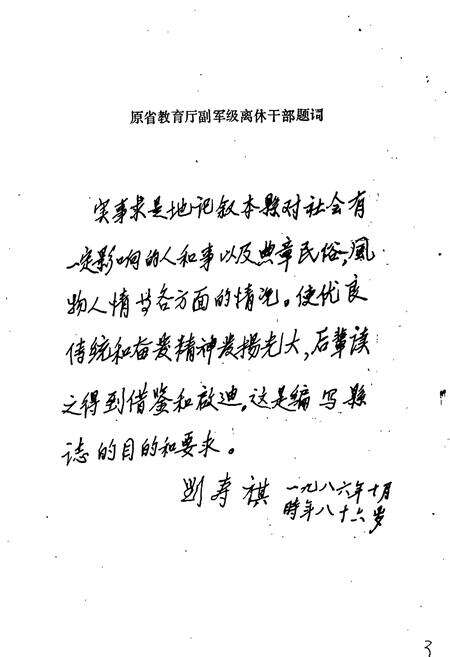 原省教育厅副军级离休干部题词
实事求是地记叙本縣对社会有
一定影响的人和事以及典章民俗,風
物人情等各方面的情况。使优良
传统和奋发精神发揚光大,后輩读
之得到借鉴和啟迪。这是编写縣
誌的目的和要求。
刘寿祺 一九八六年十月
時年八十六岁
3